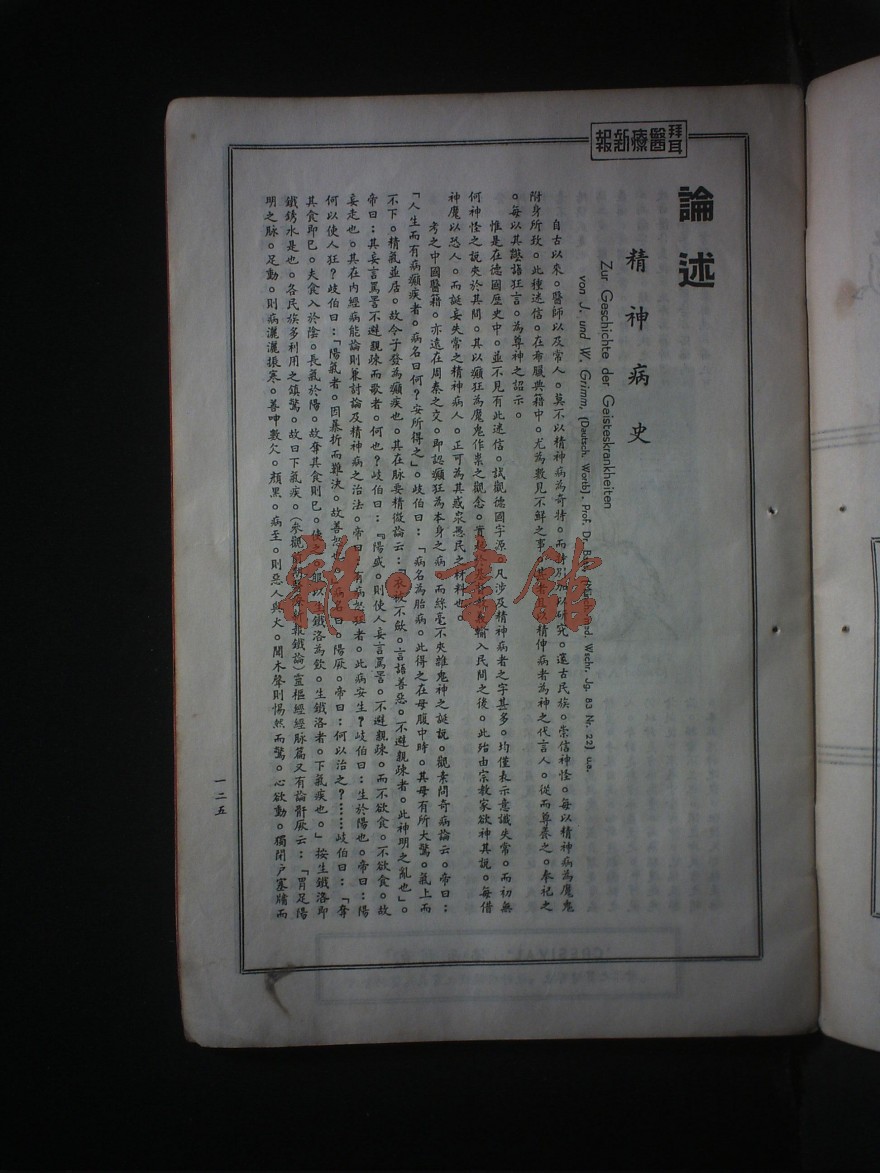 拜耳醫療新報
論述
精神病史
Zur Geschichte der Geisteskrankheiten
von J. und W. Grimm, (Deutsch. Wortb), Prof. Dr. B Med. Wschr. Jg. 83 Nr. 22) u.a.
自古以來。醫師以及常人。莫不以精神病為奇特。而特別加以研究。遠古民族。崇信神怪。每以精神病為魔鬼
附身所致。此種迷信。在希臘典籍中。尤為數見不鮮之事。以精伸病者為神之代言人。從而尊養之。奉祀之
。每以其譫語狂言。為尊神之詔示。
惟是在德國歷史中。並不見有此迷信。試觀德國字源。凡涉及精神病者之字甚多。均僅表示意識失常。而初無
何神怪之說夾於其間。其以癲狂為魔鬼作祟之觀念。實輸入民間之後。此殆由宗教家欲神其說。每借
神魔以恐人。而誕妄失常之精神病人。正可為其或眾愚民之材料也。
考之中國醫籍。亦遠在周秦之交。即認癲狂為本身之病。而絲毫不夾雜鬼神之誕說。觀素問奇病論云。帝曰：
「人生而有病癲疾者。病名曰何？安所得之」。岐伯曰：「病名為胎病。此得之在母腹中時。其母有所大驚。氣上而
不下。精氣並居。故令子發為癲疾也。其在脉要精微論云：「衣被不斂。言語善惡。不避親疎者。此神明之亂也」。
帝曰：其妄言罵詈不避親疎而歌者。何也？岐伯曰：『陽盛。則使人妄言罵詈。不避親疎。而不欲食。不欲食。故
妄走也。其在內經病能論則兼討論及精神病之治法。帝曰：有病怒狂者。此病安生？岐伯曰：生於陽也。帝曰：陽
何以使人狂？岐伯曰：「陽氣者。因暴折而難決。故善怒也。病名曰。陽厥。帝曰：何以治之？……岐伯曰：「奪
其食即已。夫食入於陰。長氣於陽。故奪其食則已。使服以生鐵洛為飲。生鐵洛者。下氣疾也。」按生鐵洛即
鐵銹水是也。各民族多利用之鎮驚。故曰下氣疾。(參觀報鐵論)靈樞經經脉篇又有論骭厥云：「胃足陽
明之脉。足動。則病灑灑振寒。善呻數欠。顏黑。病至。則惡人與火。聞木聲則惕然而驚。心欲動。獨閉户塞牖而
一二五